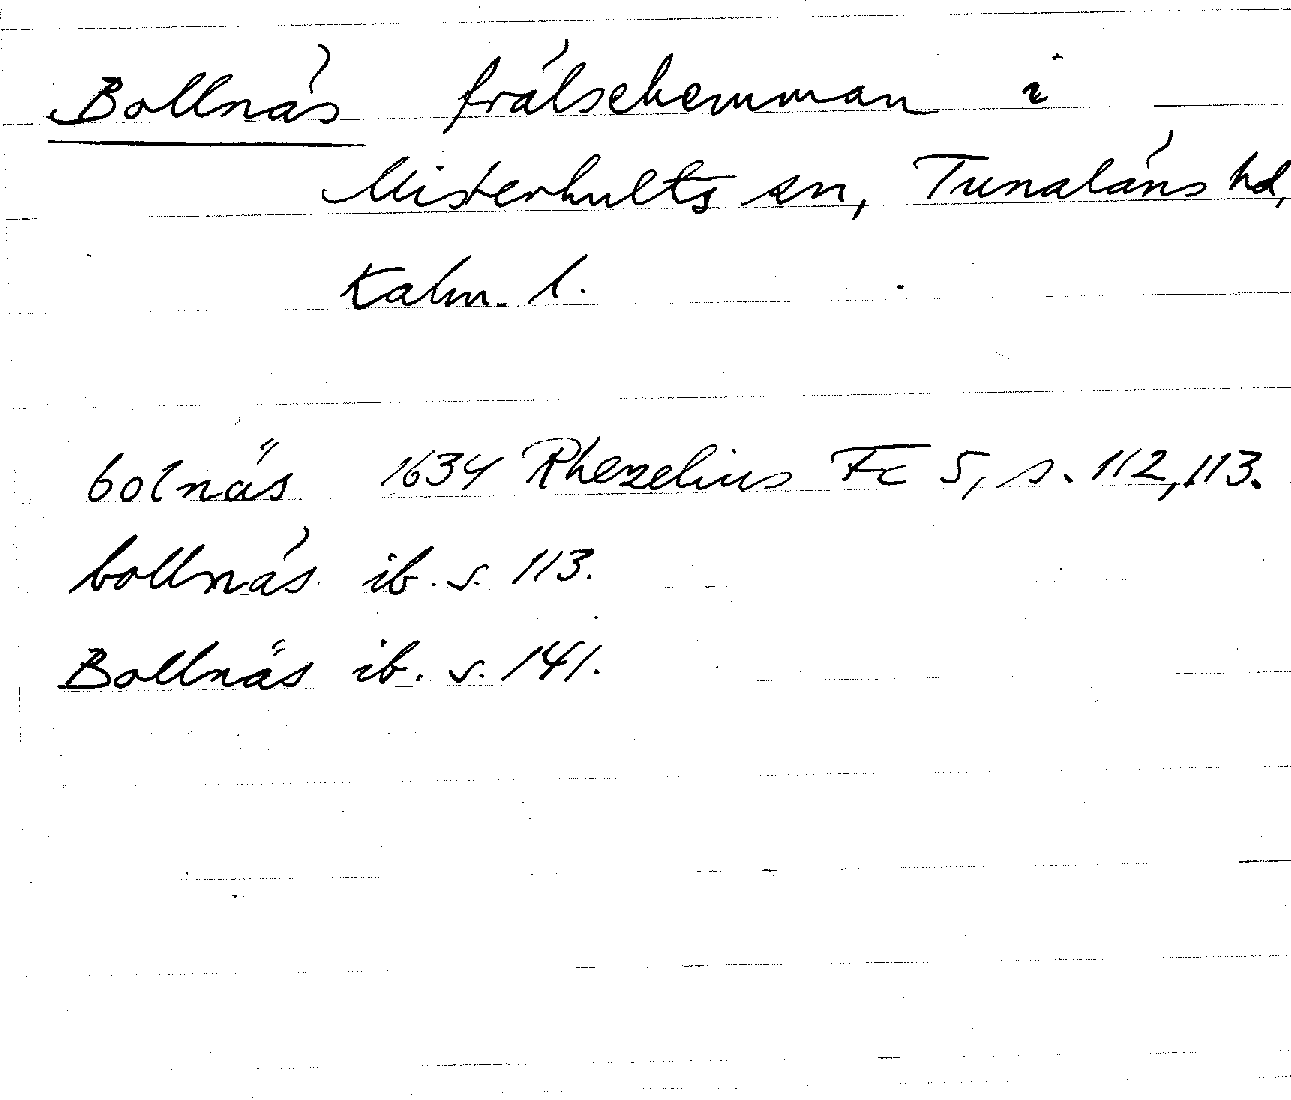 Bollnäs frälsehemman i
Misterhults sn, Tunaläns hd,
Kalm. l.
bolnäs 1634 Rhezelius Fc 5, s. 112, 113.
bollnäs ib. s. 113.
Bollnäs ib. s. 141.